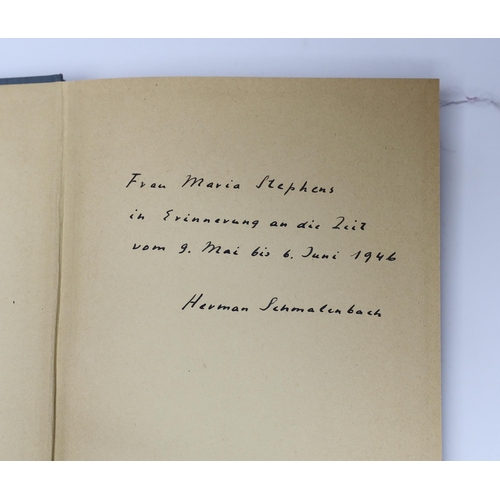 Frau Maria Stephens
in Erinnerung an die Zeit
vom 9. Mai bis 6. Juni 1946
Herman Schmalenbach